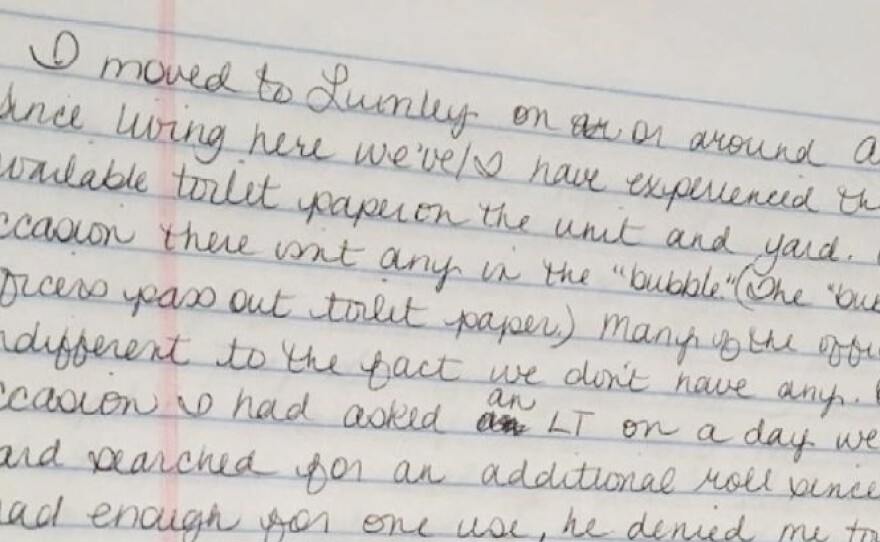 I moved to Lumley on or around a
since living here we've/I have experienced th
available toilet paper on the unit and yard.
ccasion there isn't any in the "bubble." (The "bub
fficers pass out toilet paper.) Many of the offic
ndifferent to the fact we don't have any.
ccasion I had asked an LT on a day we
ard searched for an additional roll since
had enough for one use, he denied me to